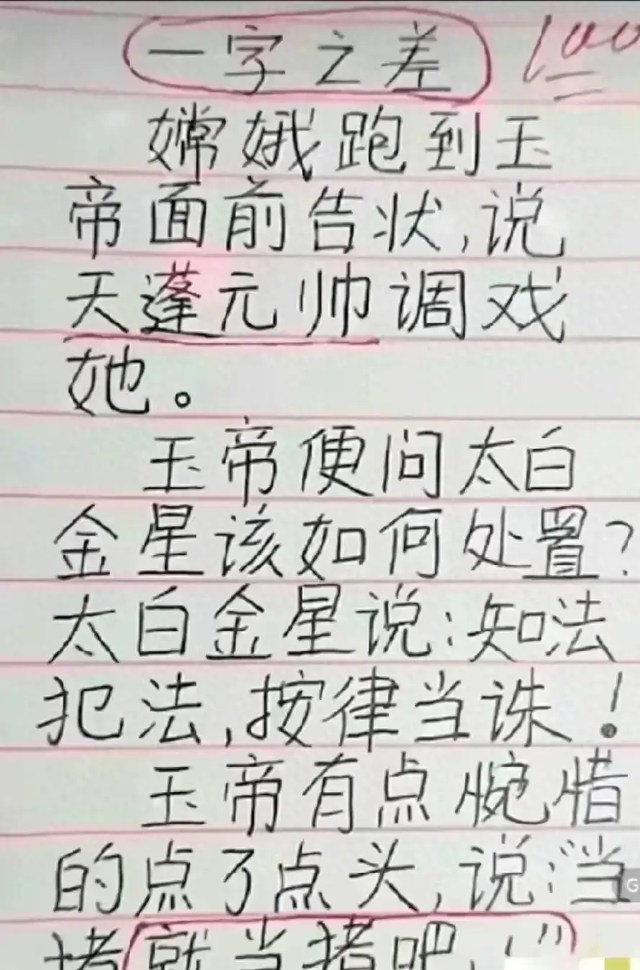 一字之差 100
嫦娥跑到玉
帝面前告状,说
天蓬元帅调戏
她。
玉帝便问太白
金星该如何处置?
太白金星说:知法
犯法,按律当诛!
玉帝有点惋惜
的点了点头,说:“当
猪就当猪吧.!”